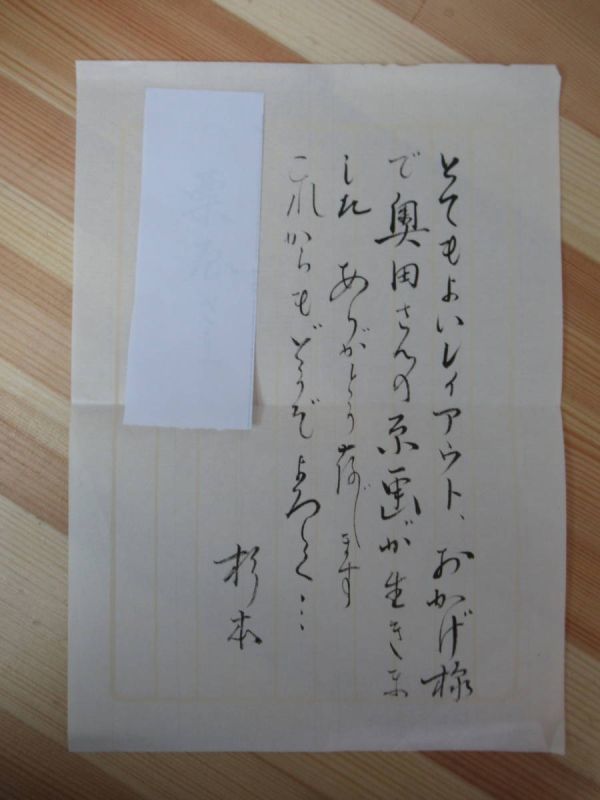 とてもよいレイアウト、おかげ様
で奥田さんの原画が生きま
した ありがとう存じます
これからもどうぞよろしく…
杉本